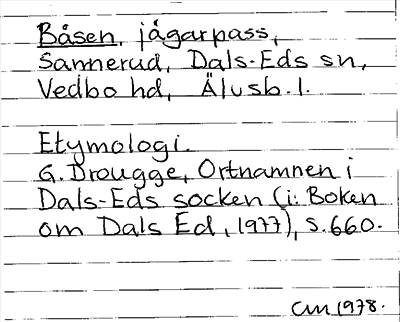 Båsen, jågarpass,
Sannerud, Dals-Eds sn,
Vedbo hd, Älvsb. l.
Etymologi.
G. Drougge, Ortnamnen i
Dals-Eds socken (i: Boken
om Dals Ed, 1977), s. 660.
CM 1978.